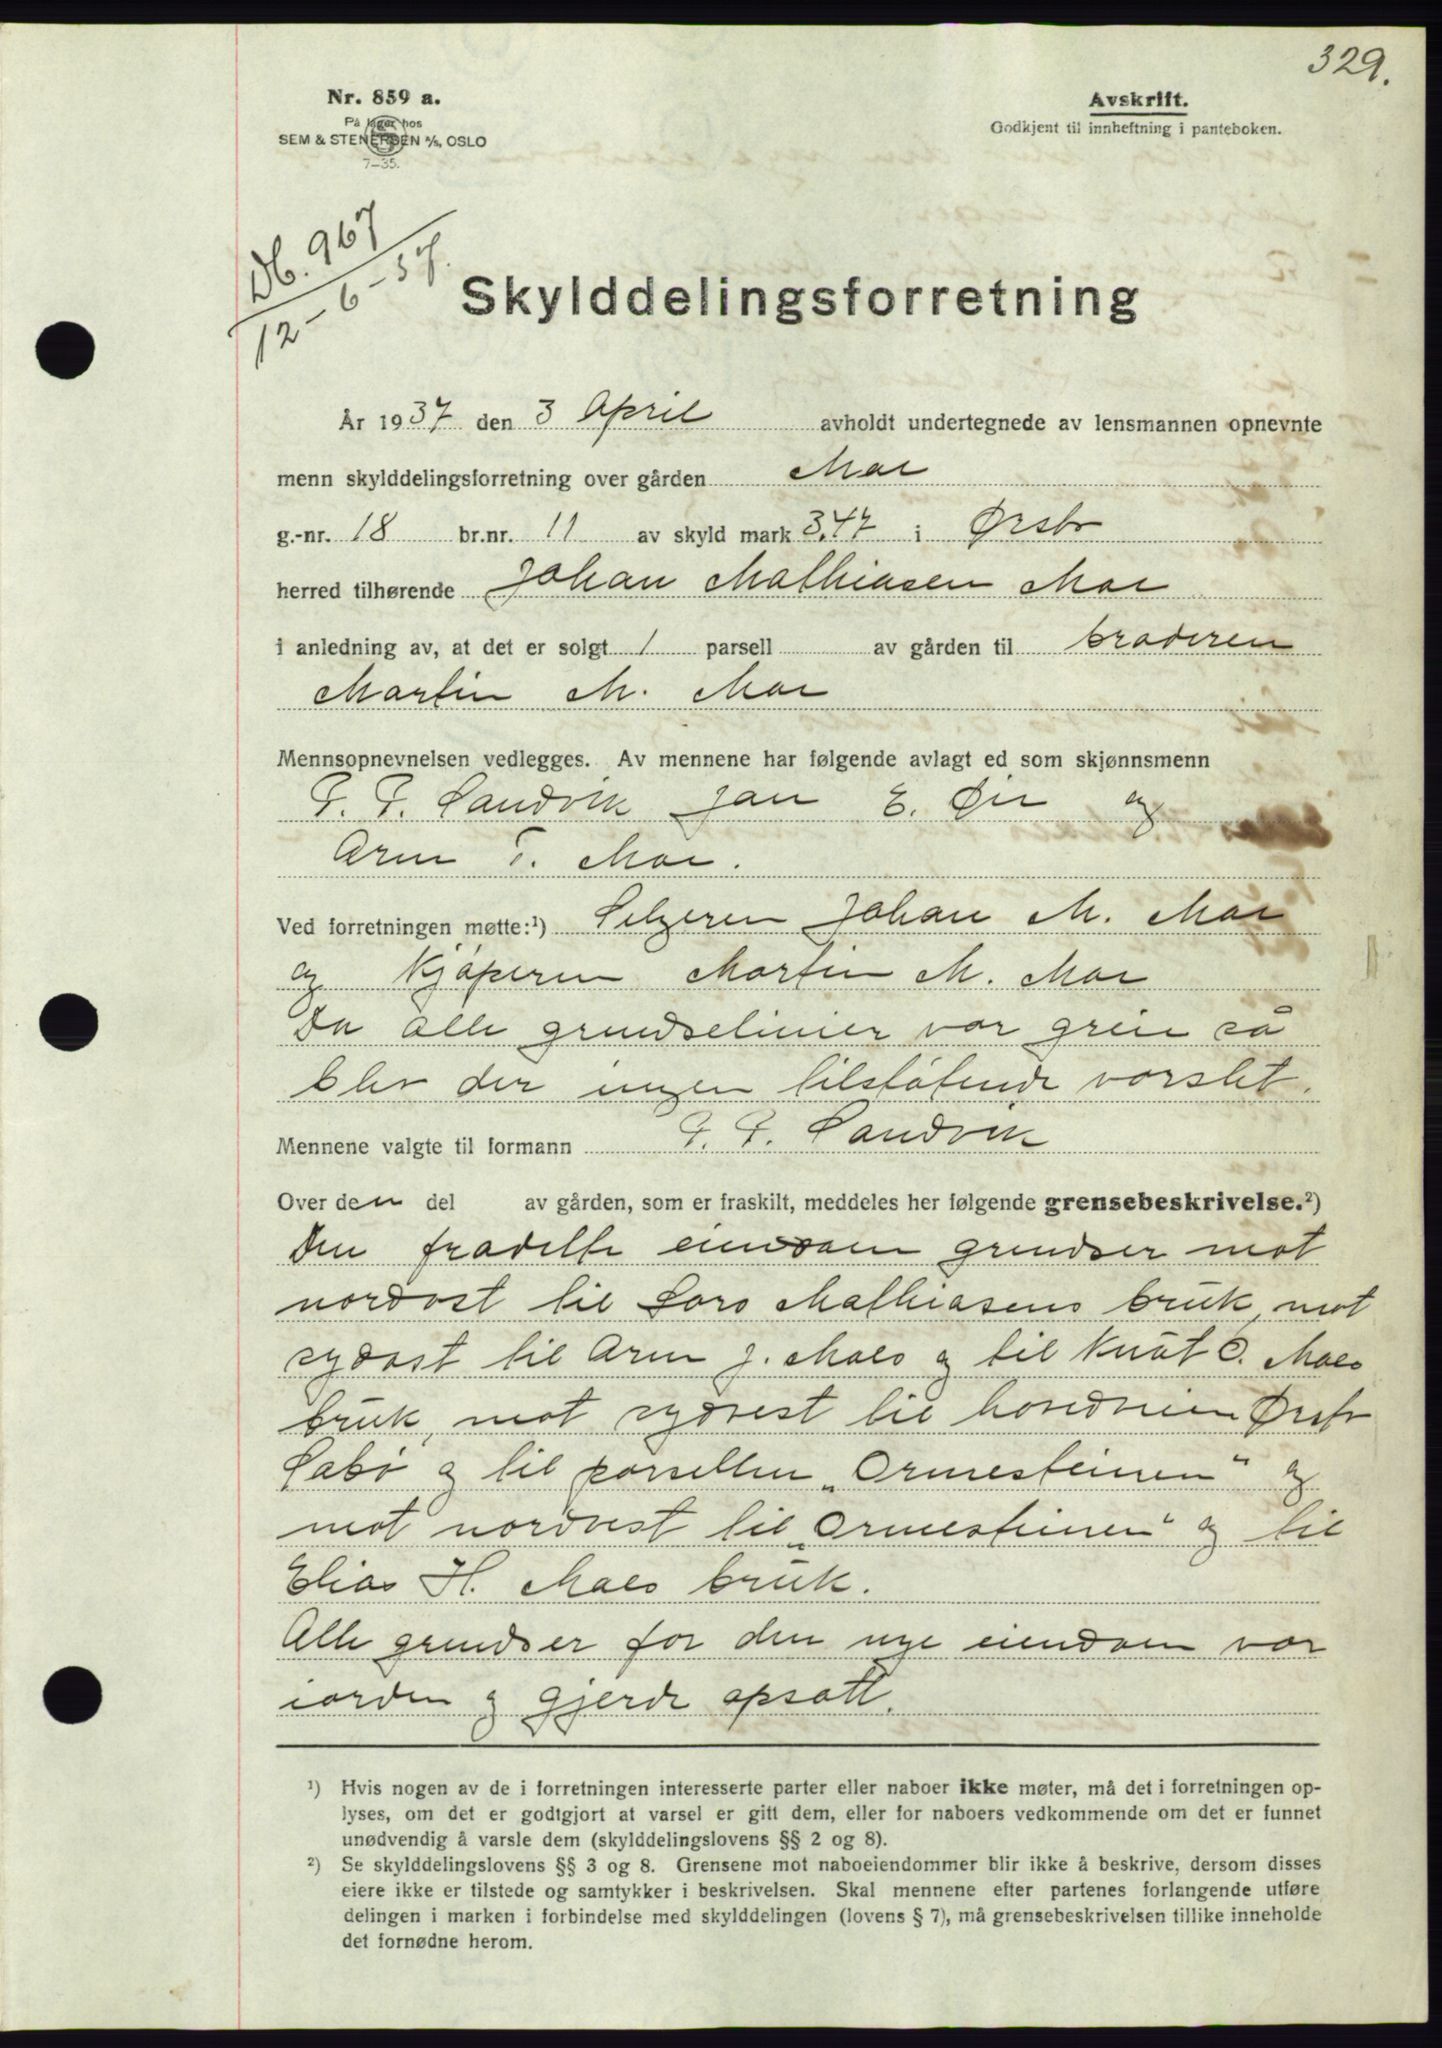 329.
Nr. 859 a.
På lager hos
SEM & STENERSEN A/S, OSLO
7-35.
Avskrift.
Godkjent til innheftning i panteboken.
Db. 967
12-6-37.
Skylddelingsforretning
År 1937 den 3 April avholdt undertegnede av lensmannen opnevnte
menn skylddelingsforretning over gården Moe
g.-nr. 18 br.nr. 11 av skyld mark 3.47 i Ørsta
herred tilhørende Johan Mathiasen Moe
i anledning av, at det er solgt 1 parsell av gården til broderen
Martin M. Moe
Mennsopnevnelsen vedlegges. Av mennene har følgende avlagt ed som skjønnsmenn
P. P. Sandvik Jon E. Øie og
Arne T. Moe.
Ved forretningen møtte:¹) Selgeren Johan M. Moe
og Kjøperen Martin M. Moe
Da alle grundselinier var greie så
blev der ingen tilstøtende varslet.
Mennene valgte til formann P. P. Sandvik
Over den del av gården, som er fraskilt, meddeles her følgende grensebeskrivelse.²)
Den fradelte eiendom grendser mot
nordost til Lars Mathiasens bruk, mot
sydost til Arne J. Moes og til Knut O. Moes
bruk, mot sydvest til hovedveien Ørsta
Sæbø og til parsellen „Ormesteinen" og
mot nordvest til „Ormesteinen" og til
Elias H. Moes bruk.
Alle grendser for den nye eiendom var
iorden og gjerde opsatt.
¹) Hvis nogen av de i forretningen interesserte parter eller naboer ikke møter, må det i forretningen op-
lyses, om det er godtgjort at varsel er gitt dem, eller for naboers vedkommende om det er funnet
unødvendig å varsle dem (skylddelingslovens §§ 2 og 8).
²) Se skylddelingslovens §§ 3 og 8. Grensene mot naboeiendommer blir ikke å beskrive, dersom disses
eiere ikke er tilstede og samtykker i beskrivelsen. Skal mennene efter partenes forlangende utføre
delingen i marken i forbindelse med skylddelingen (lovens § 7), må grensebeskrivelsen tillike inneholde
det fornødne herom.